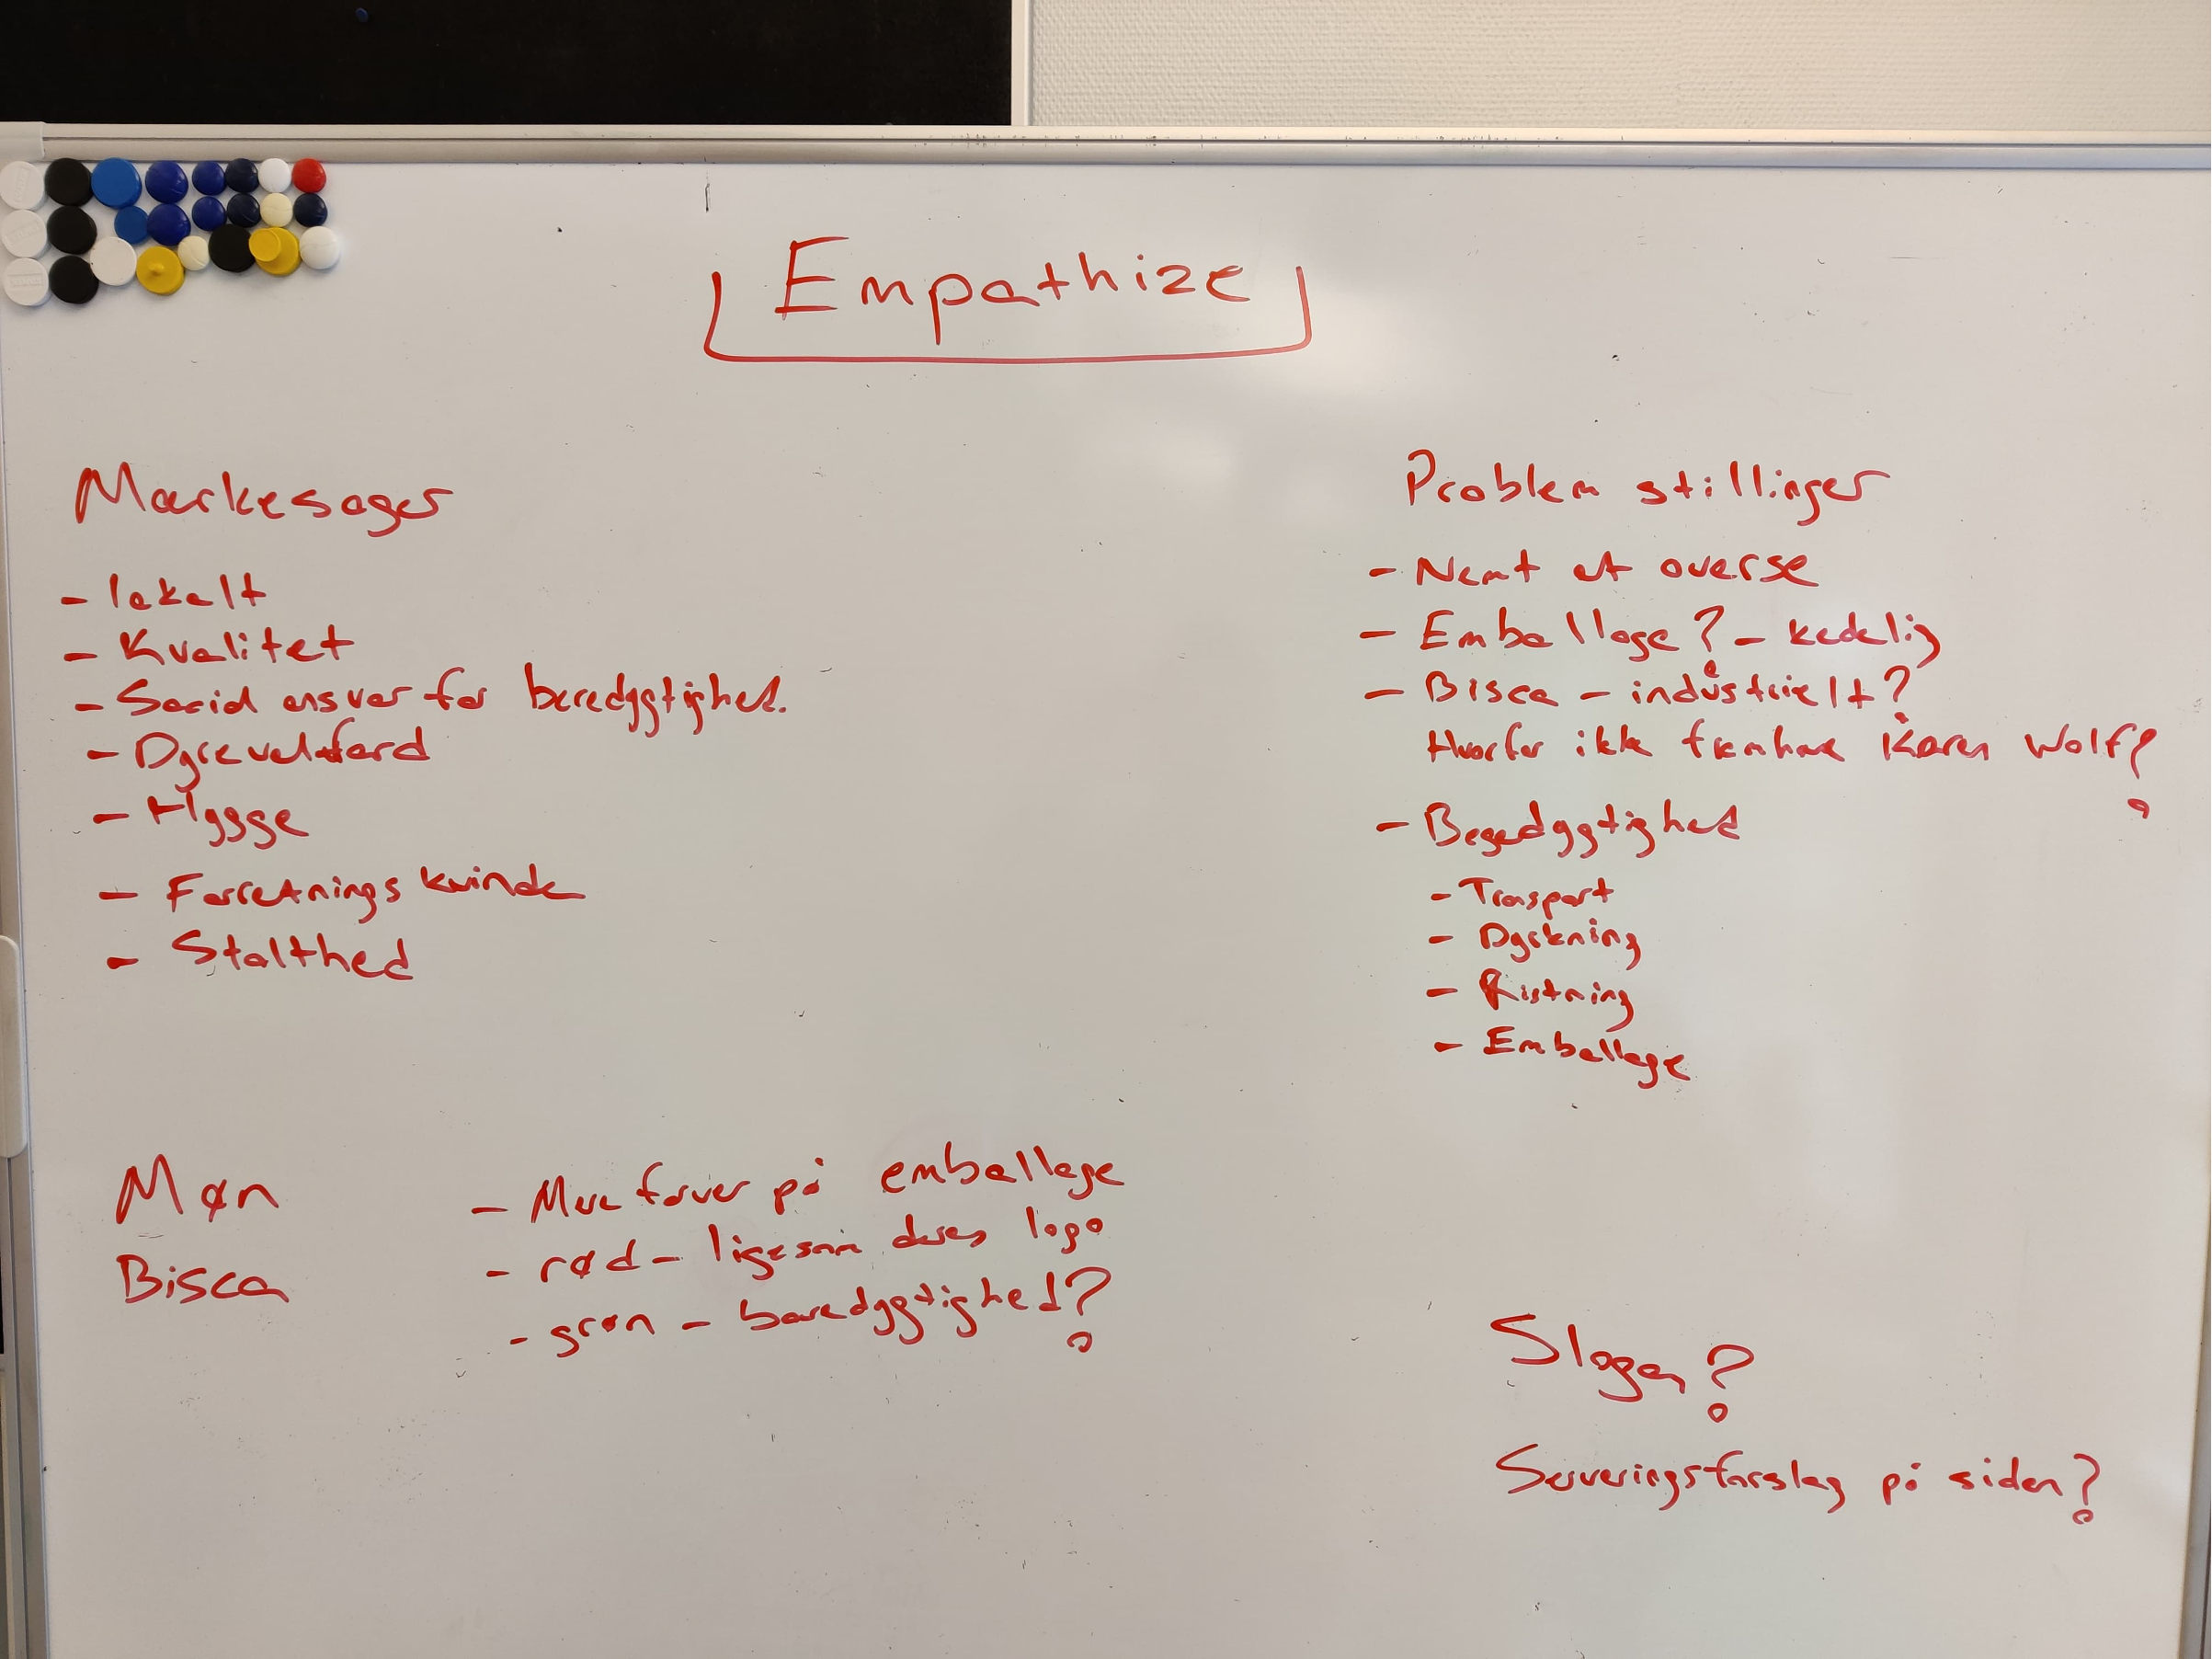 Empathize
Mærkesager
- lokalt
- Kvalitet
- Social ansvar for bæredygtighed.
- Dyrevelfærd
- Hygge
- Forretningskvinde
- Stolthed
Problem stillinger
- Nemt at overse
- Emballage? - kedelig
- Bisca - industrielt?
Hvorfor ikke fremhæve Karen Wolf?
- Begedygtighed
- Transport
- Dyrkning
- Ristning
- Emballage
Møn
Bisca
- Mere farver på emballage
- rød - ligesom deres logo
- grøn - bæredygtighed?
Slogan?
Serveringsforslag på siden?